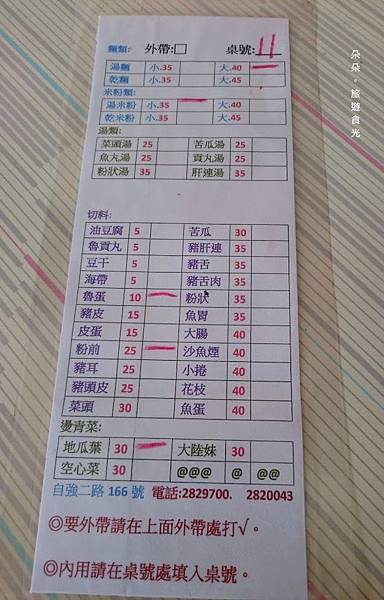 麵類: 外帶:□ 桌號: 11
湯麵 小.35 大.40
乾麵 小.35 大.45
米粉類:
湯米粉 小.35 大.40
乾米粉 小.35 大.45
湯類:
菜頭湯 25 苦瓜湯 25
魚丸湯 25 貢丸湯 25
粉狀湯 35 肝連湯 35
切料:
油豆腐 5 苦瓜 30
魯貢丸 5 豬肝連 35
豆干 5 豬舌 35
海帶 5 豬舌肉 35
魯蛋 10 粉狀 35
豬皮 15 魚胃 35
皮蛋 15 大腸 40
粉前 25 沙魚煙 40
豬耳 25 小捲 40
豬頭皮 25 花枝 40
菜頭 30 魚蛋 40
燙青菜:
地瓜葉 30 大陸妹 30
空心菜 30 @@@ @ @@
自強二路 166 號 電話:2829700. 2820043
◎要外帶請在上面外帶處打√。
◎內用請在桌號處填入桌號。
朵朵。旅遊食光